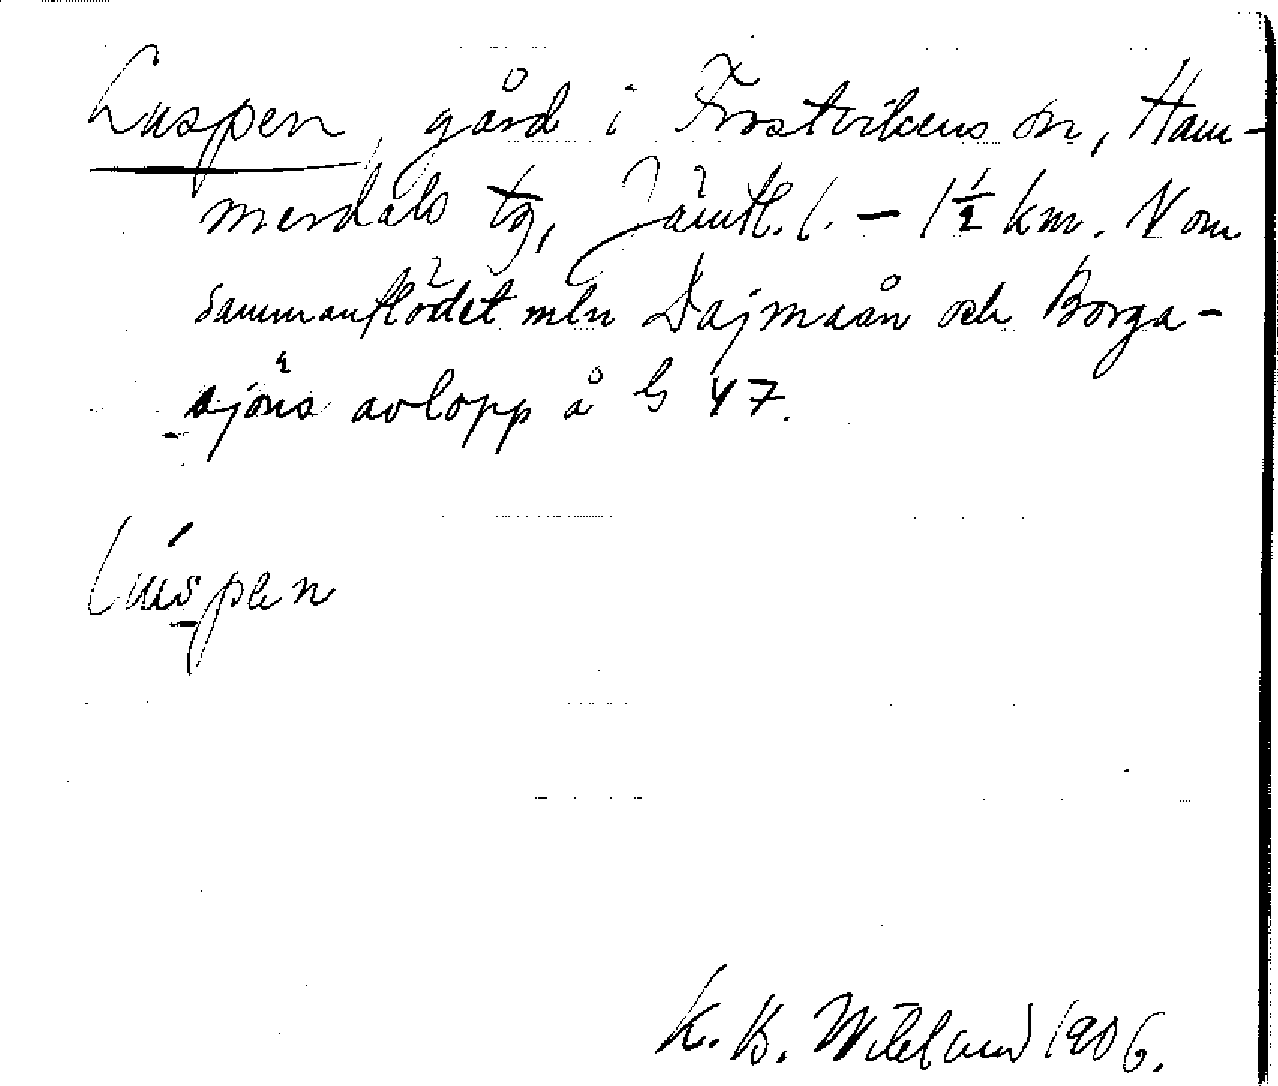 Luspen, gård i Frostvikens sn, Ham-
merdals tg, Jämtl. l. – 1½ km. N om
sammanflödet mln Dajmaån och Borga-
sjöns avlopp å G 47.
Luspen
K. B. Wiklund 1906.